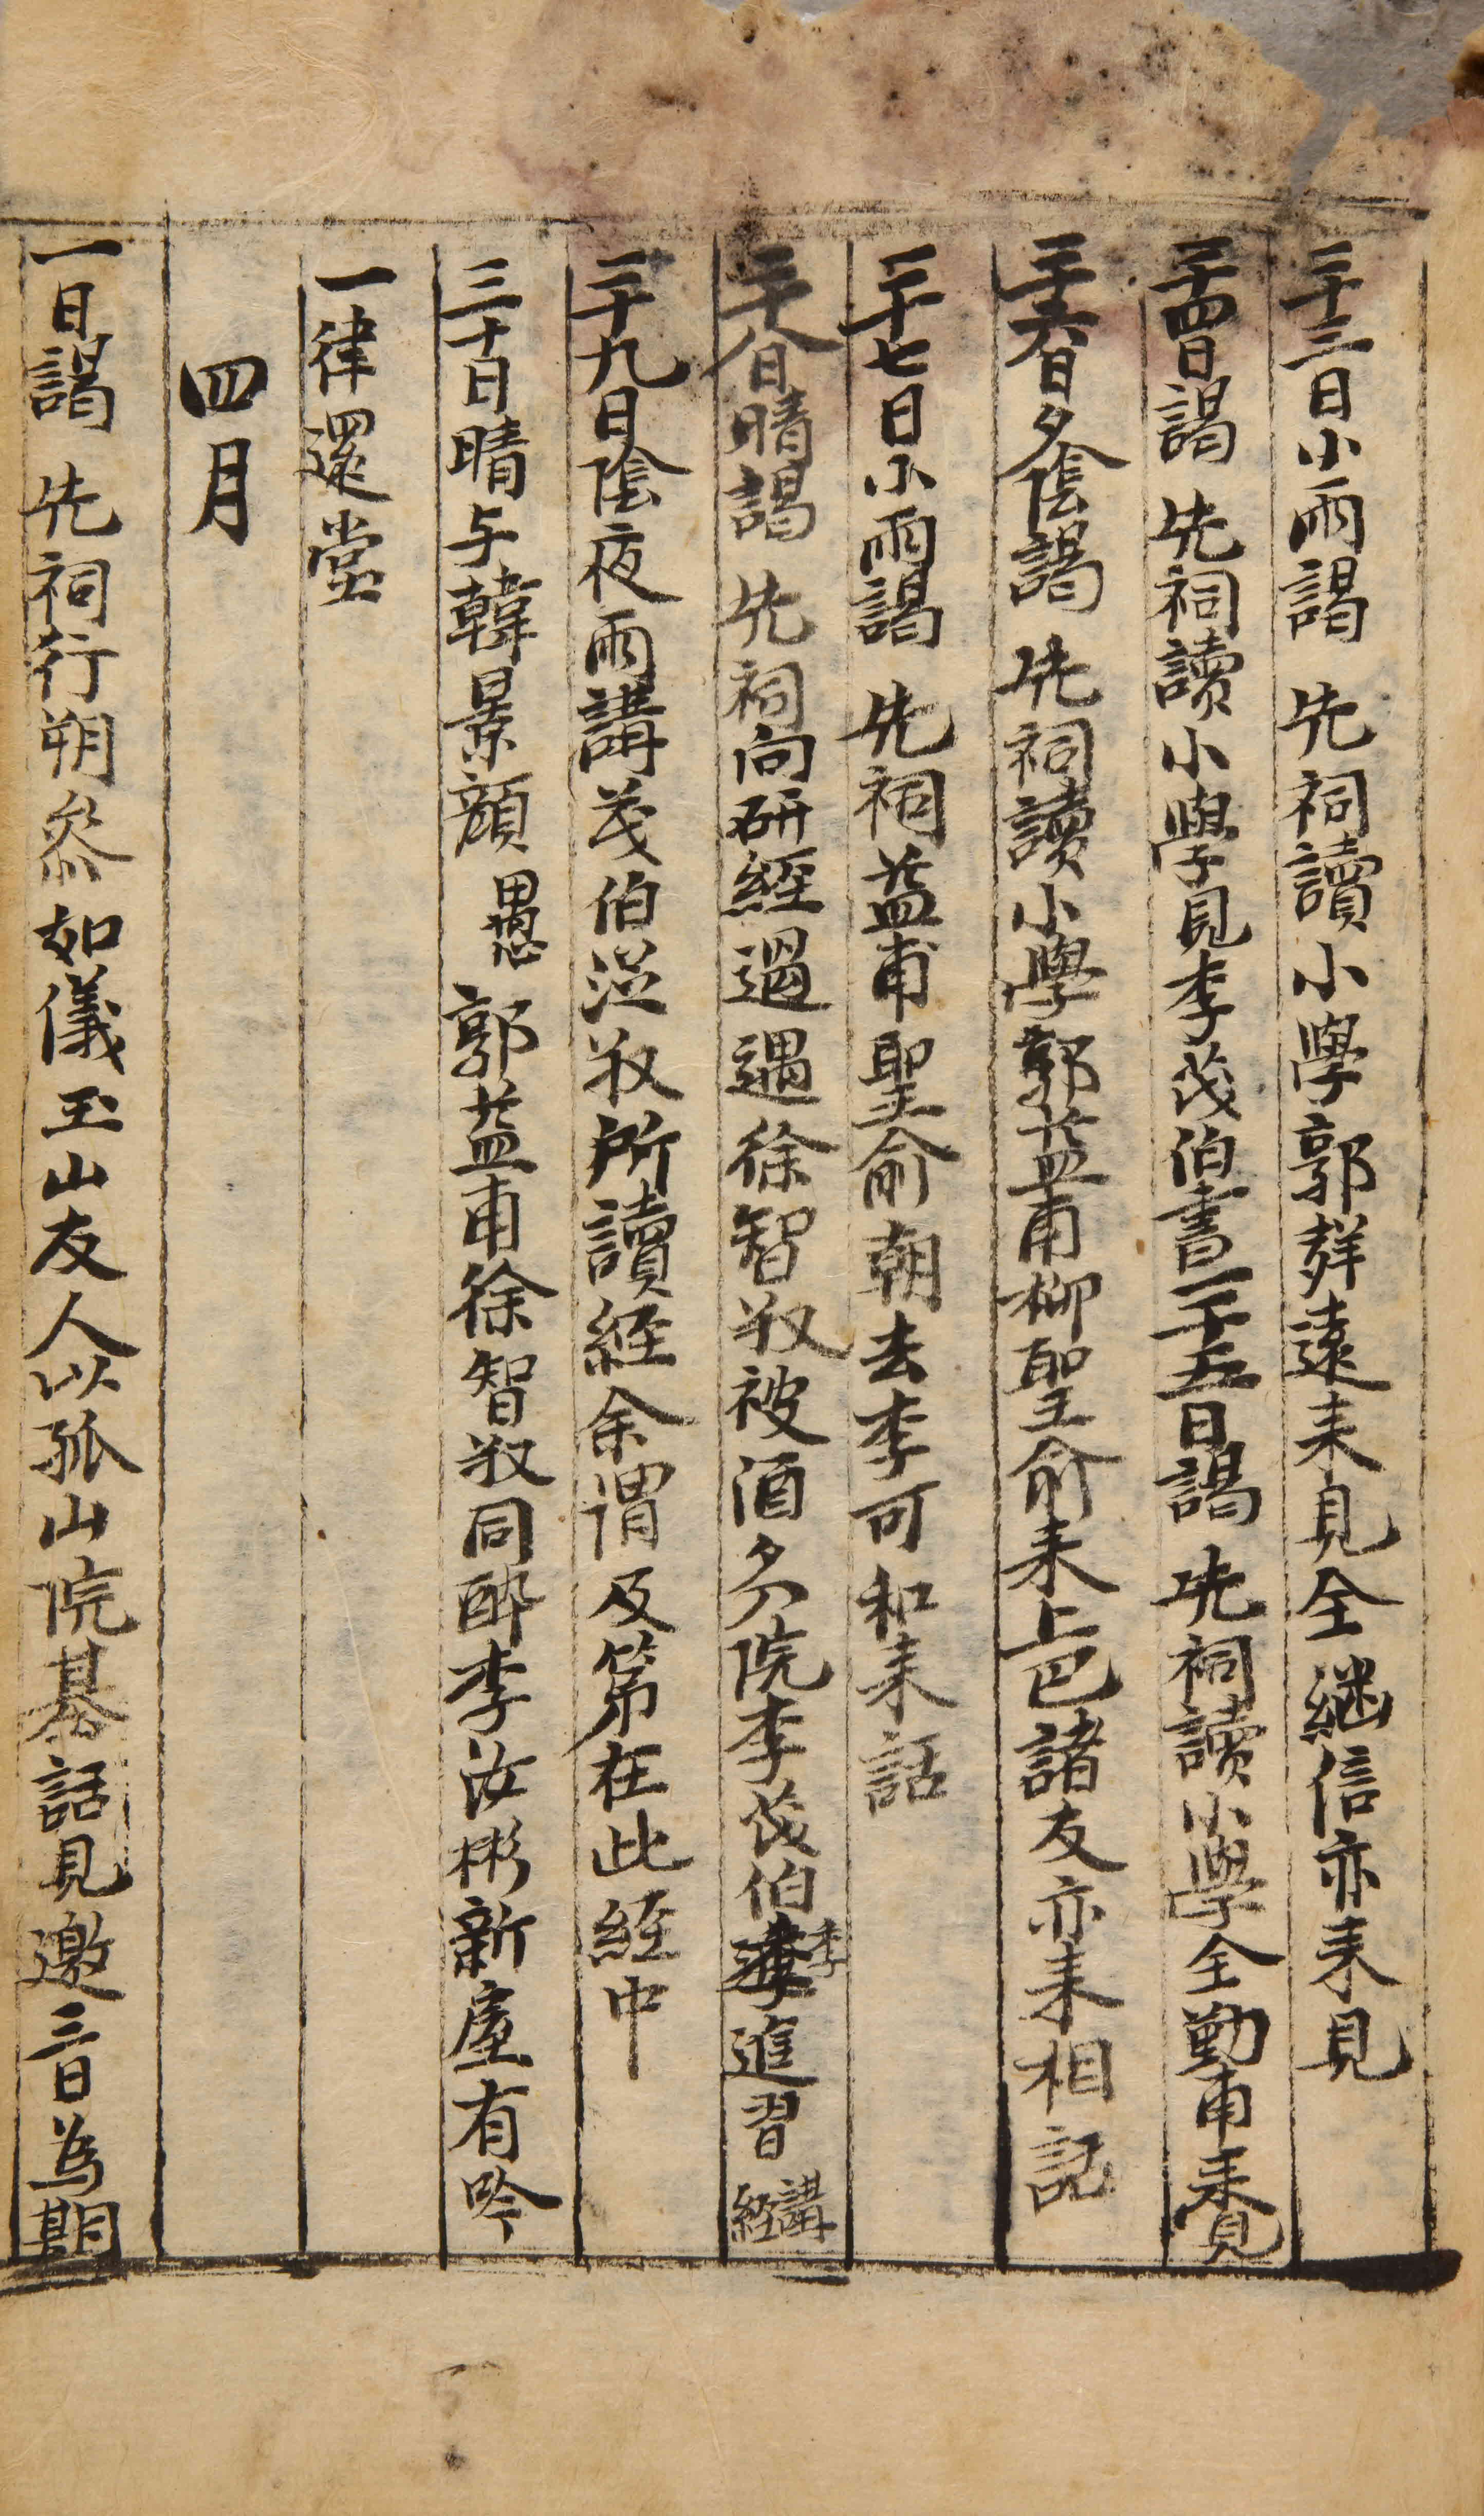 二十三日小雨謁 先祠讀小學郭羣遠来見全継信亦来見
二十四日謁 先祠讀小學見李茂伯書二十五日謁 先祠讀小學全勤甫来覓
二十六日夕陰謁 先祠讀小學郭益甫柳聖俞来上邑諸友亦来相記
二十七日小雨謁 先祠益甫聖俞朝去李可和来話
二十八日晴謁 先祠向研經過遇徐智叔被酒夕入院李茂伯季進習講經
二十九日陰夜雨講茂伯從叔所讀経余谓及第在此経中
三十日晴与韓景顔愚郭益甫徐智叔同酔李汝彬新屋有吟
一律還堂
四月
一日謁 先祠行朔叅如儀玉山友人以孤山院基話見邀三日為期